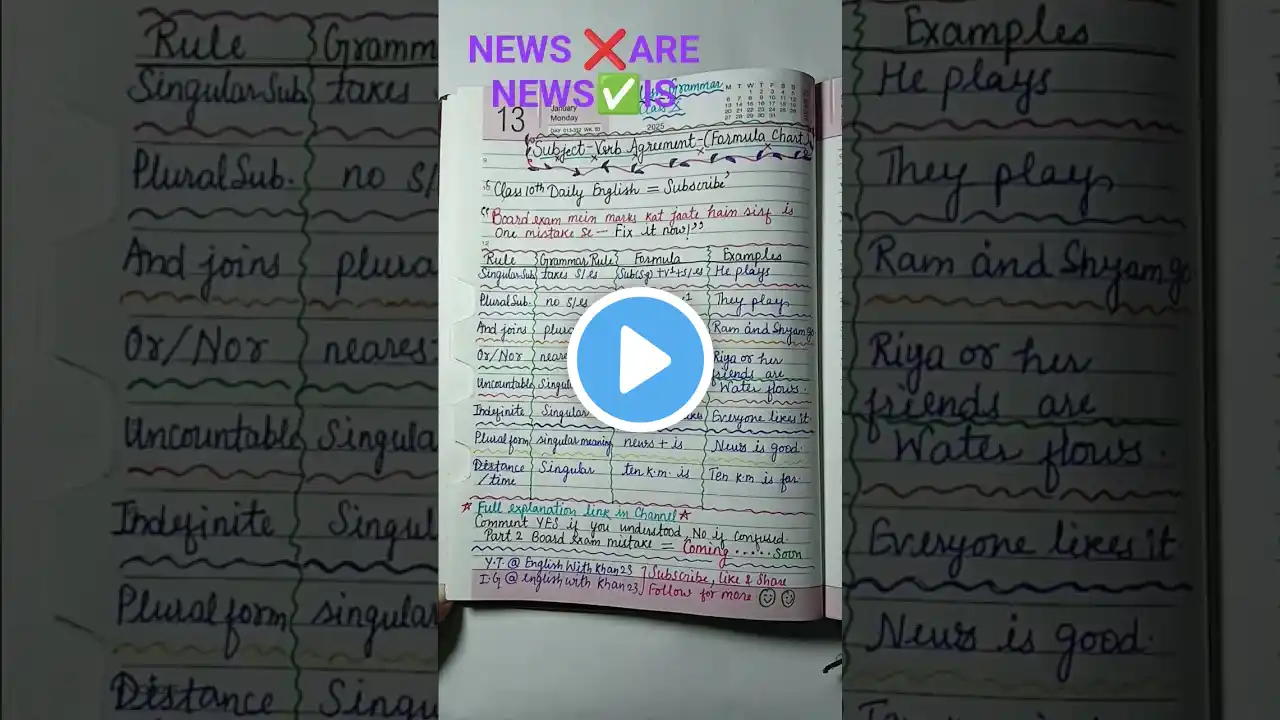 Rule Gramm
Singular Sub. takes
Plural Sub. no s/
And joins plura
Or/Nor neares
Uncountable Singula
Indefinite Singul
Plural form singular
Distance Sing
NEWS ❌ARE
NEWS✅IS
Grammar
Class X
13
January
Monday
M T W T F S S
2025
Subject-Verb Agrument-(Formula Chart)
Class 10th Daily English = Subscribe'
"Board exam mein marks kat jaate hain sirf is
One mistake se — Fix it now!"
Rule Grammar Rule Formula Examples
Singular Sub. takes s/es Sub(Sg)+v¹+s/es He plays
Plural Sub. no s/es They play
And joins Ram and Shyam go
Or/Nor Riya or her
friends are
Uncountable Water flows.
Indefinite Singular Everyone likes it
Plural form singular meaning news + is News is good.
Distance Singular ten k.m. is Ten k.m is far
/time
☆ Full explanation link in Channel ☆
Comment YES if you understood, No if confused.
Part 2 Board exam mistake = Coming ...... soon
Y.T @ English With Khan 23 Subscribe, like & Share
I.G @ english with Khan 23 Follow for more
Examples
He plays
They play
Ram and Shyam go
Riya or her
friends are
Water flows.
Everyone likes it
News is good.